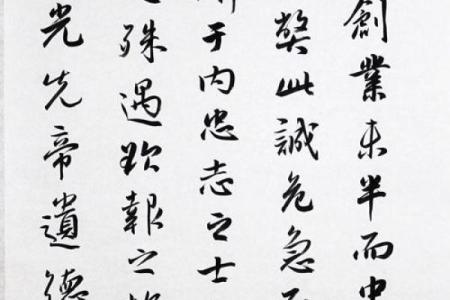 創業未半而中
弊此誠危急
于內忠志之士
殊遇欲報之
光先帝遺德